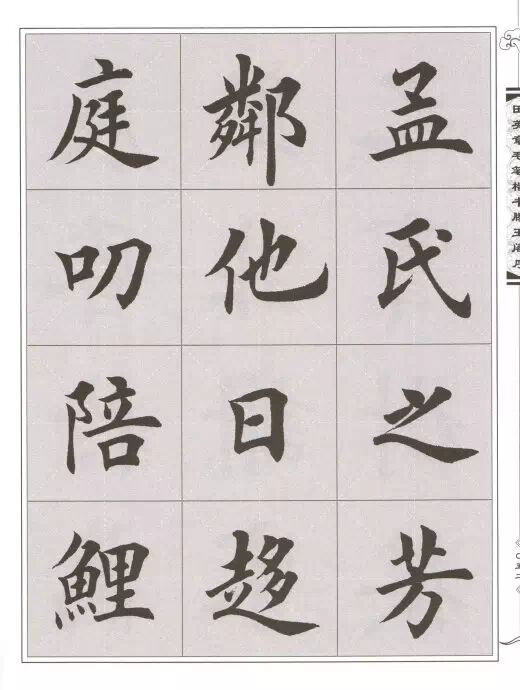 田英章毛笔楷书滕王阁序
孟氏之芳
鄰他日趍
庭叨陪鯉